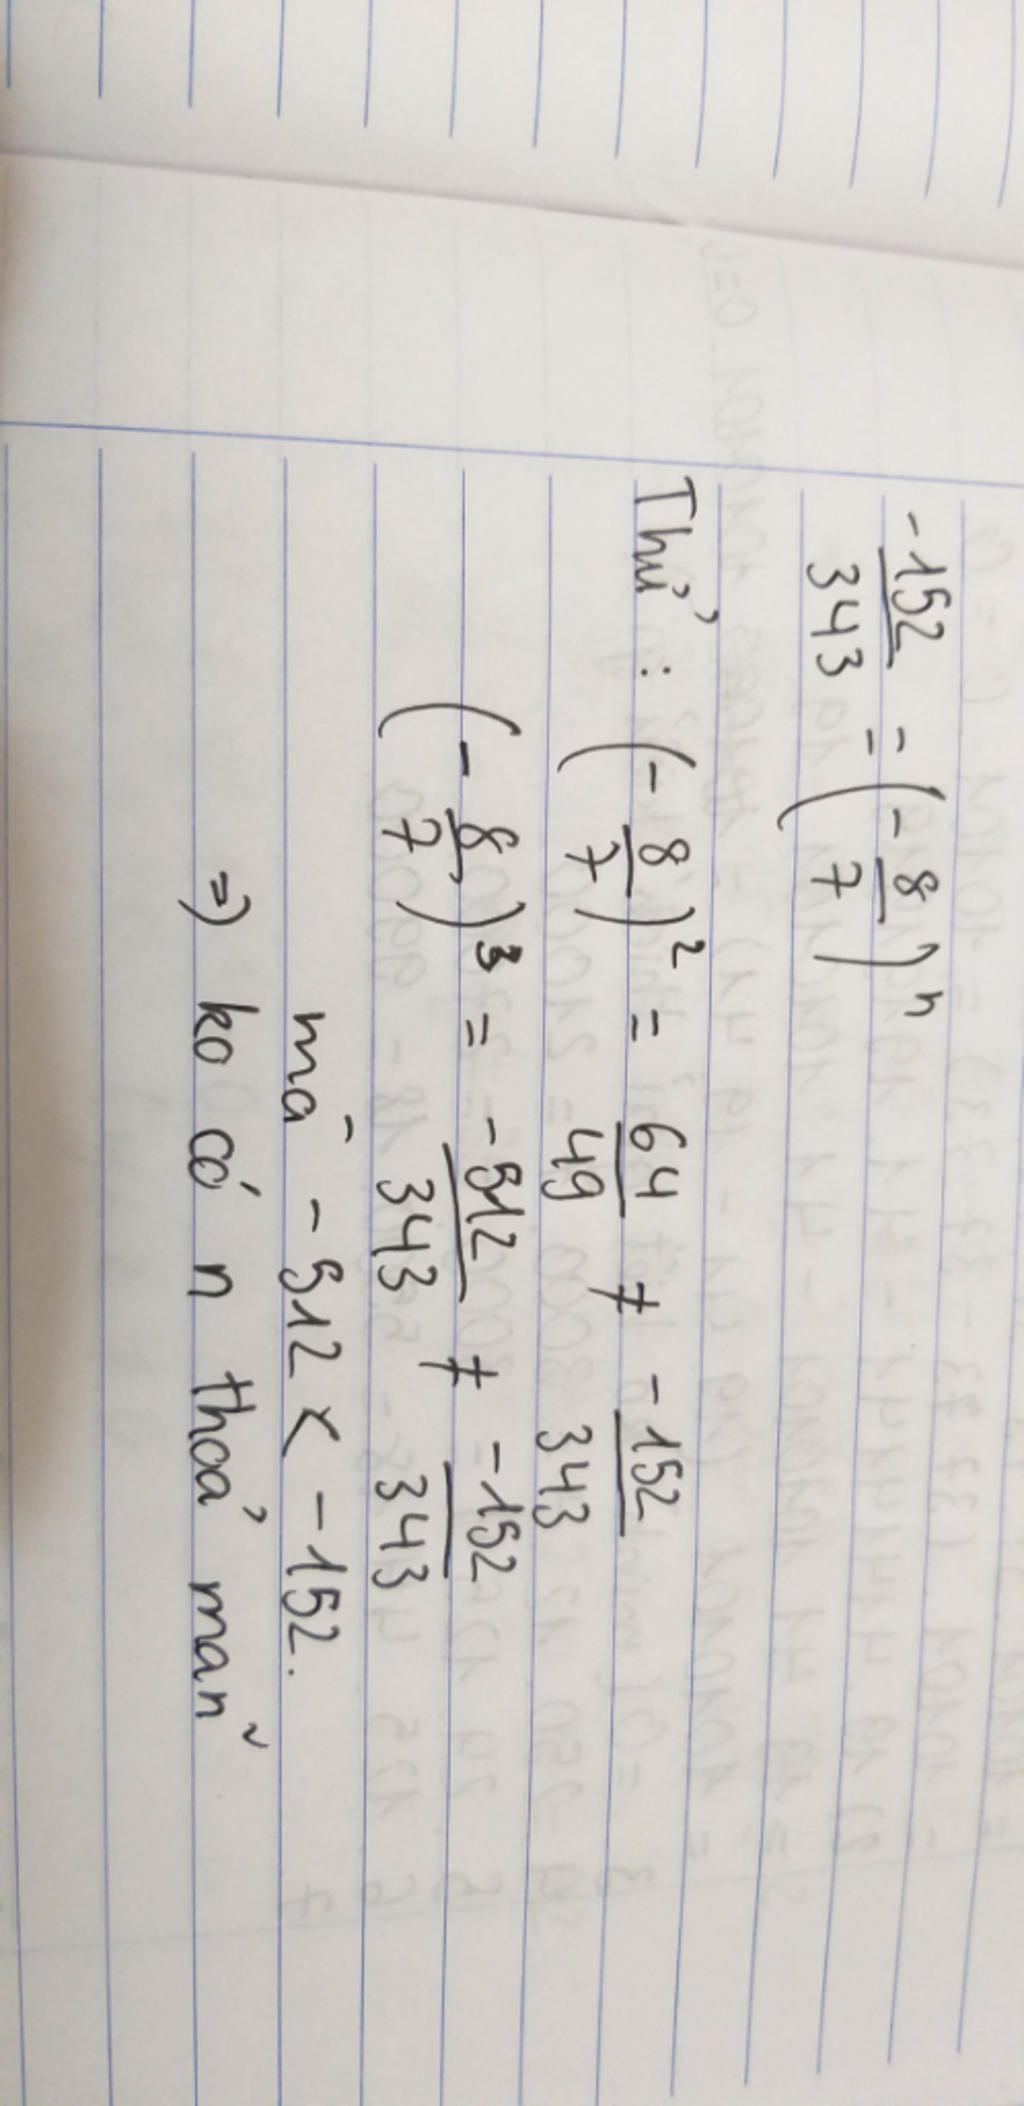 -152/343 = (-8/7)^n
Thử : (-8/7)² = 64/49 ≠ -152/343
(-8/7)³ = -512/343 ≠ -152/343
mà -512 < -152.
=> ko có n thoả mãn